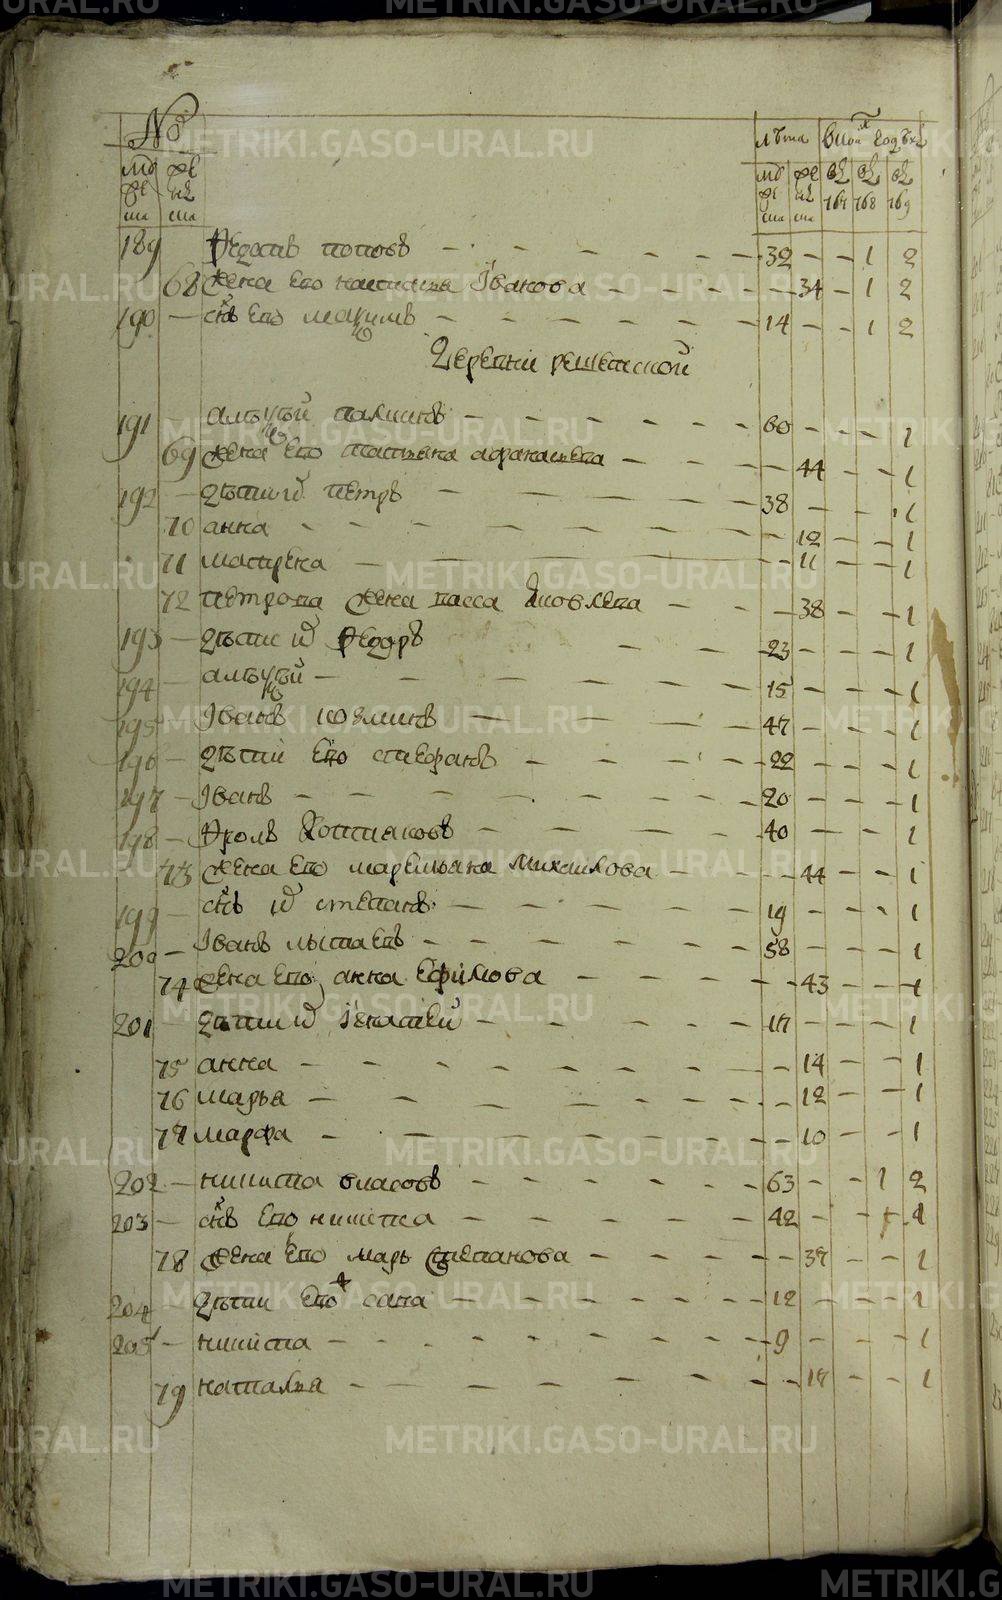 METRIKI.GASO-URAL.RU
№ лѣта вкои годѣхъ
му же му же
ска ска 767 768 769
189 Федотъ поповъ 32 1 2
68 жена ево наталья Іванова 34 1 2
190 снъ ево маѯимъ 14 1 2
деревни решетской
191 алеѯѣй палкинъ 60 1
69 жена ево татьяна афанасьева 44 1
192 дѣти их петръ 38 1
70 анна 12 1
71 матрена 11 1
72 петрова жена васса яковлева 38 1
193 дѣти их Федоръ 23 1
194 алеѯѣй 15 1
195 Іванъ козминъ 47 1
196 дѣти ево стефанъ 22 1
197 Іванъ 20 1
198 Фролъ 40 1
73 жена ево маремьяна михаилова 44 1
199 снъ их степанъ 19 1
200 Іванъ 58 1
74 жена ево анна Ефимова 43 1
201 дѣти их Ігнатей 17 1
75 анна 14 1
76 марья 12 1
77 марфа 10 1
202 никита власовъ 63 1 2
203 снъ ево никитка 42 1
78 жена ево марь степанова 39 1
204 дѣти ево сава 12 1
205 никита 9 1
79 наталья 17 1